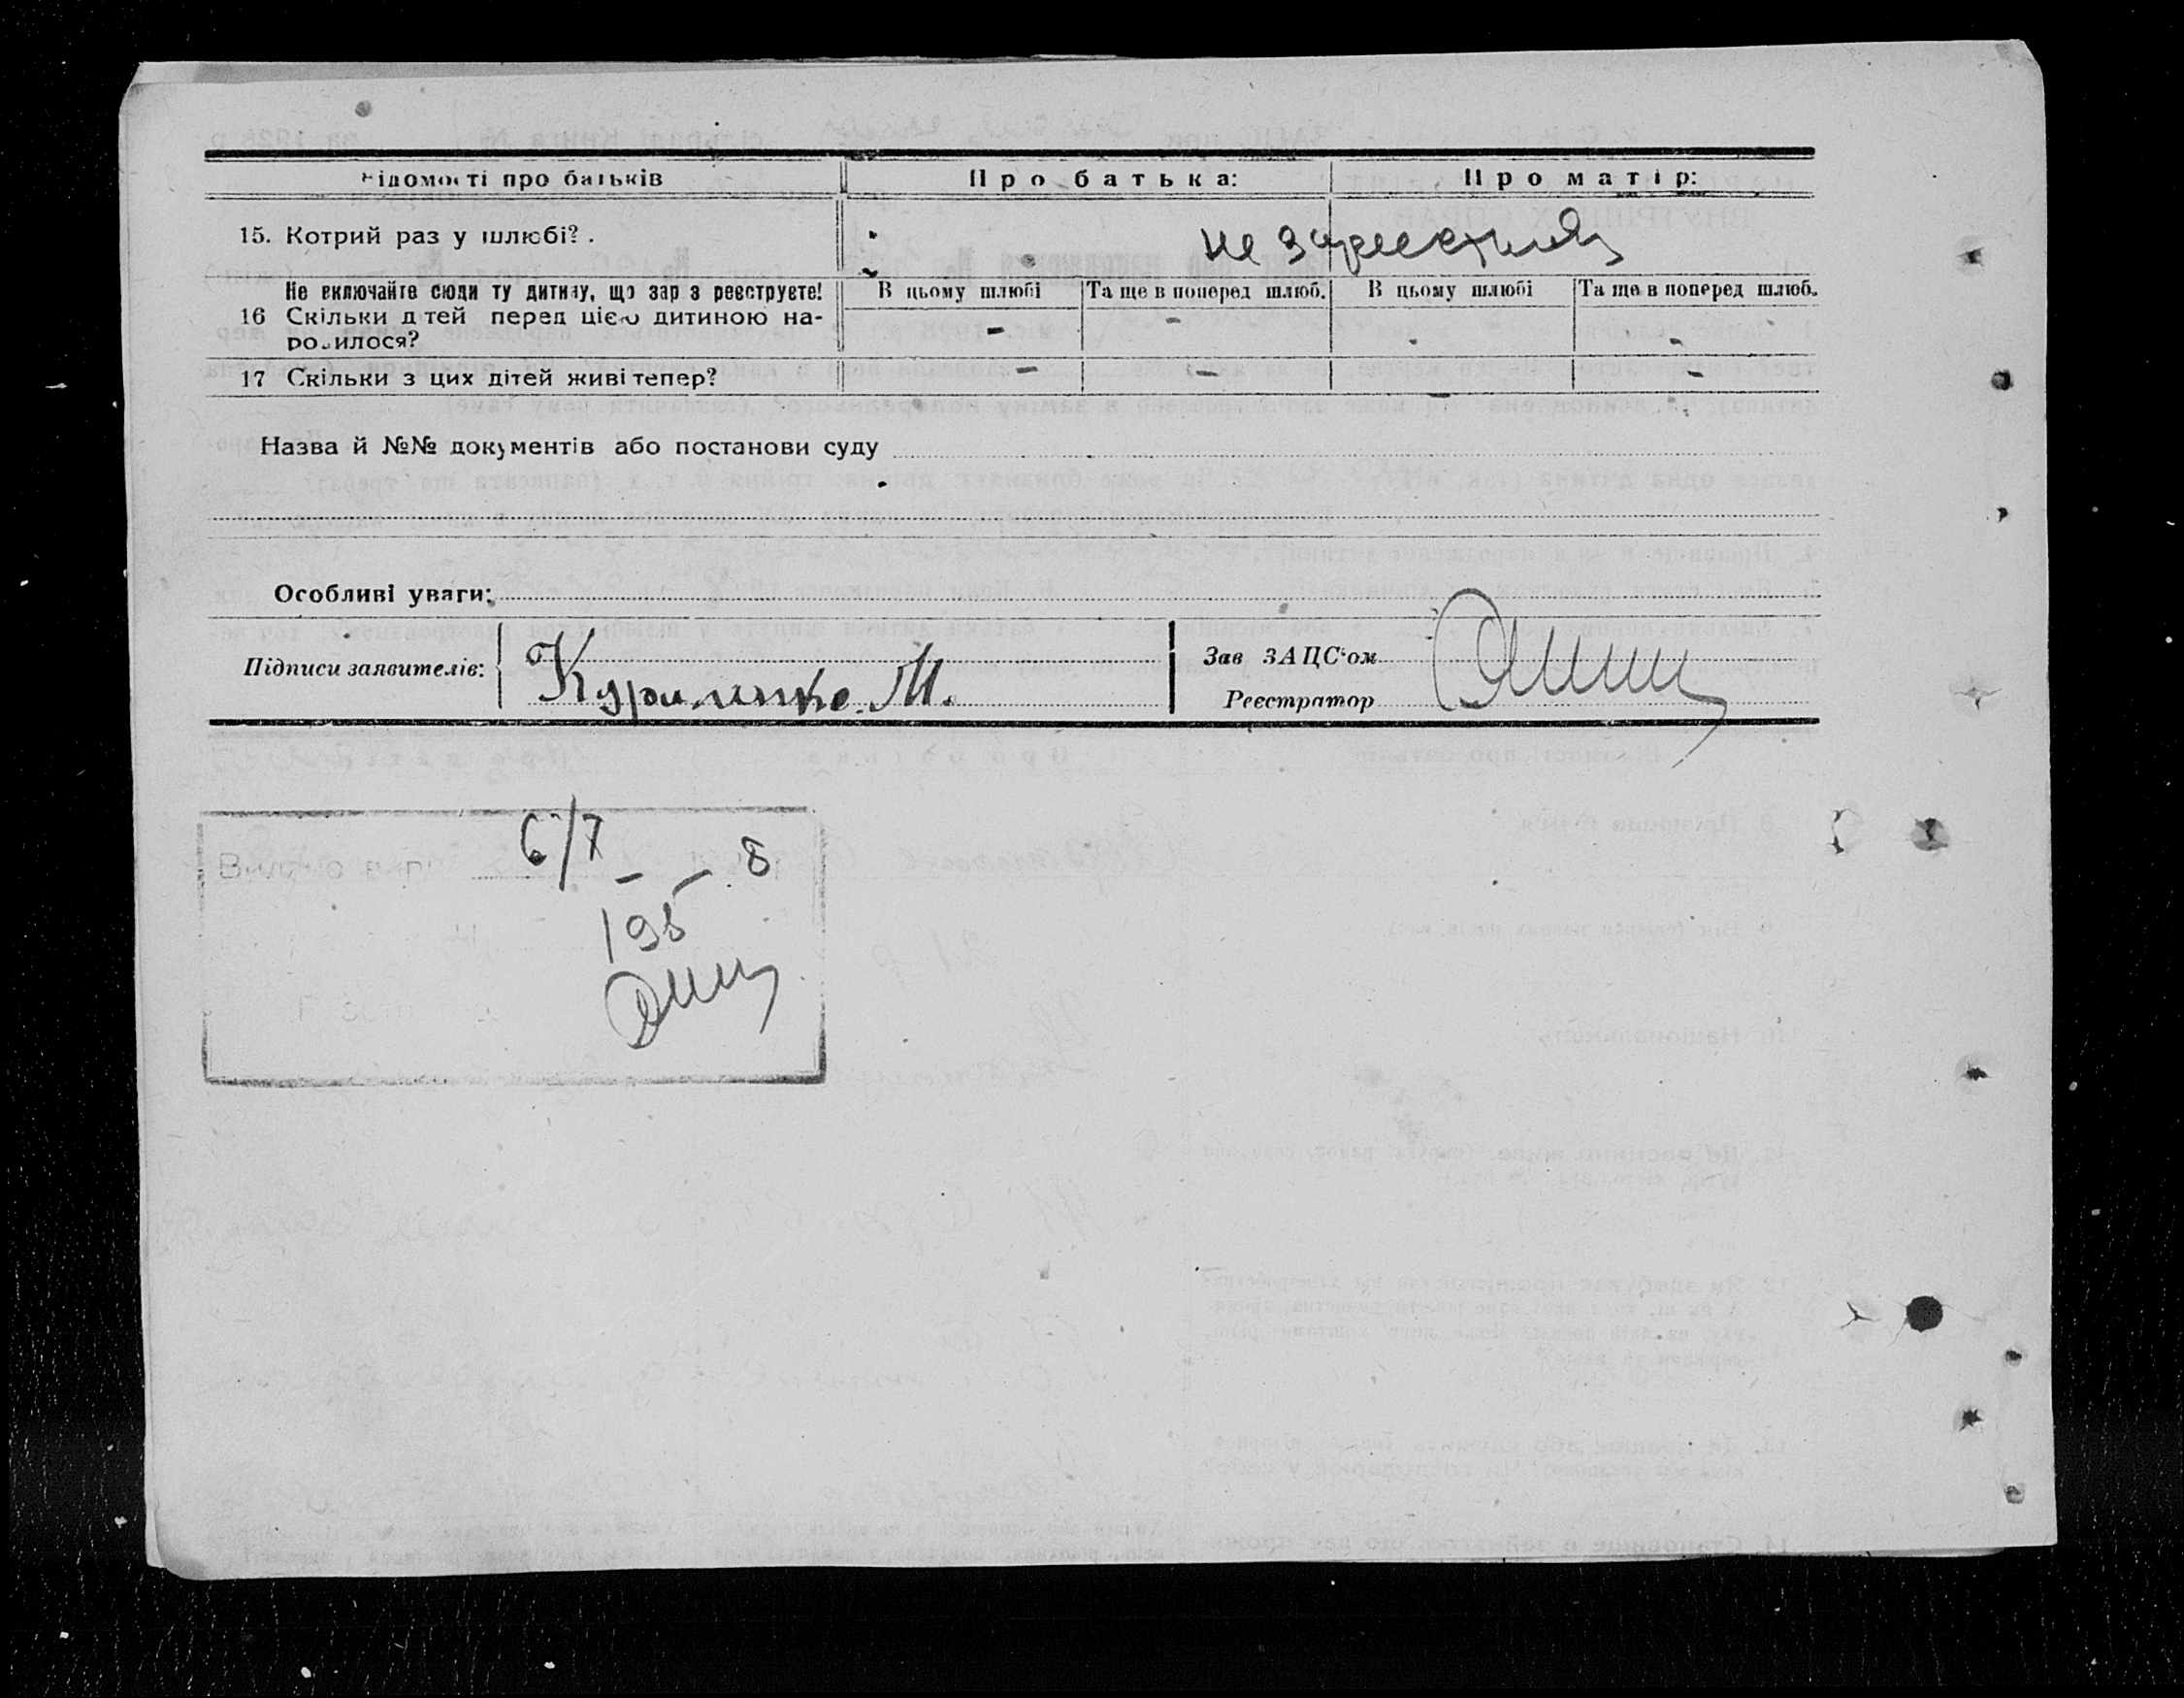 Відомості про батьків
Про батька:
Про матір:
15. Котрий раз у шлюбі?
не
Не включайте сюди ту дитину, що зар з реєструєте!
16 Скільки дітей перед цією дитиною на-
родилося?
В цьому шлюбі
Та ще в поперед шлюб.
В цьому шлюбі
Та ще в поперед шлюб.
- -
17 Скільки з цих дітей живі тепер?
- - -
Назва й №№ документів або постанови суду
Особливі уваги:
Підписи заявителів:
Куриленко. М.
Зав ЗАЦС'ом
Реєстратор
6/7
8
195